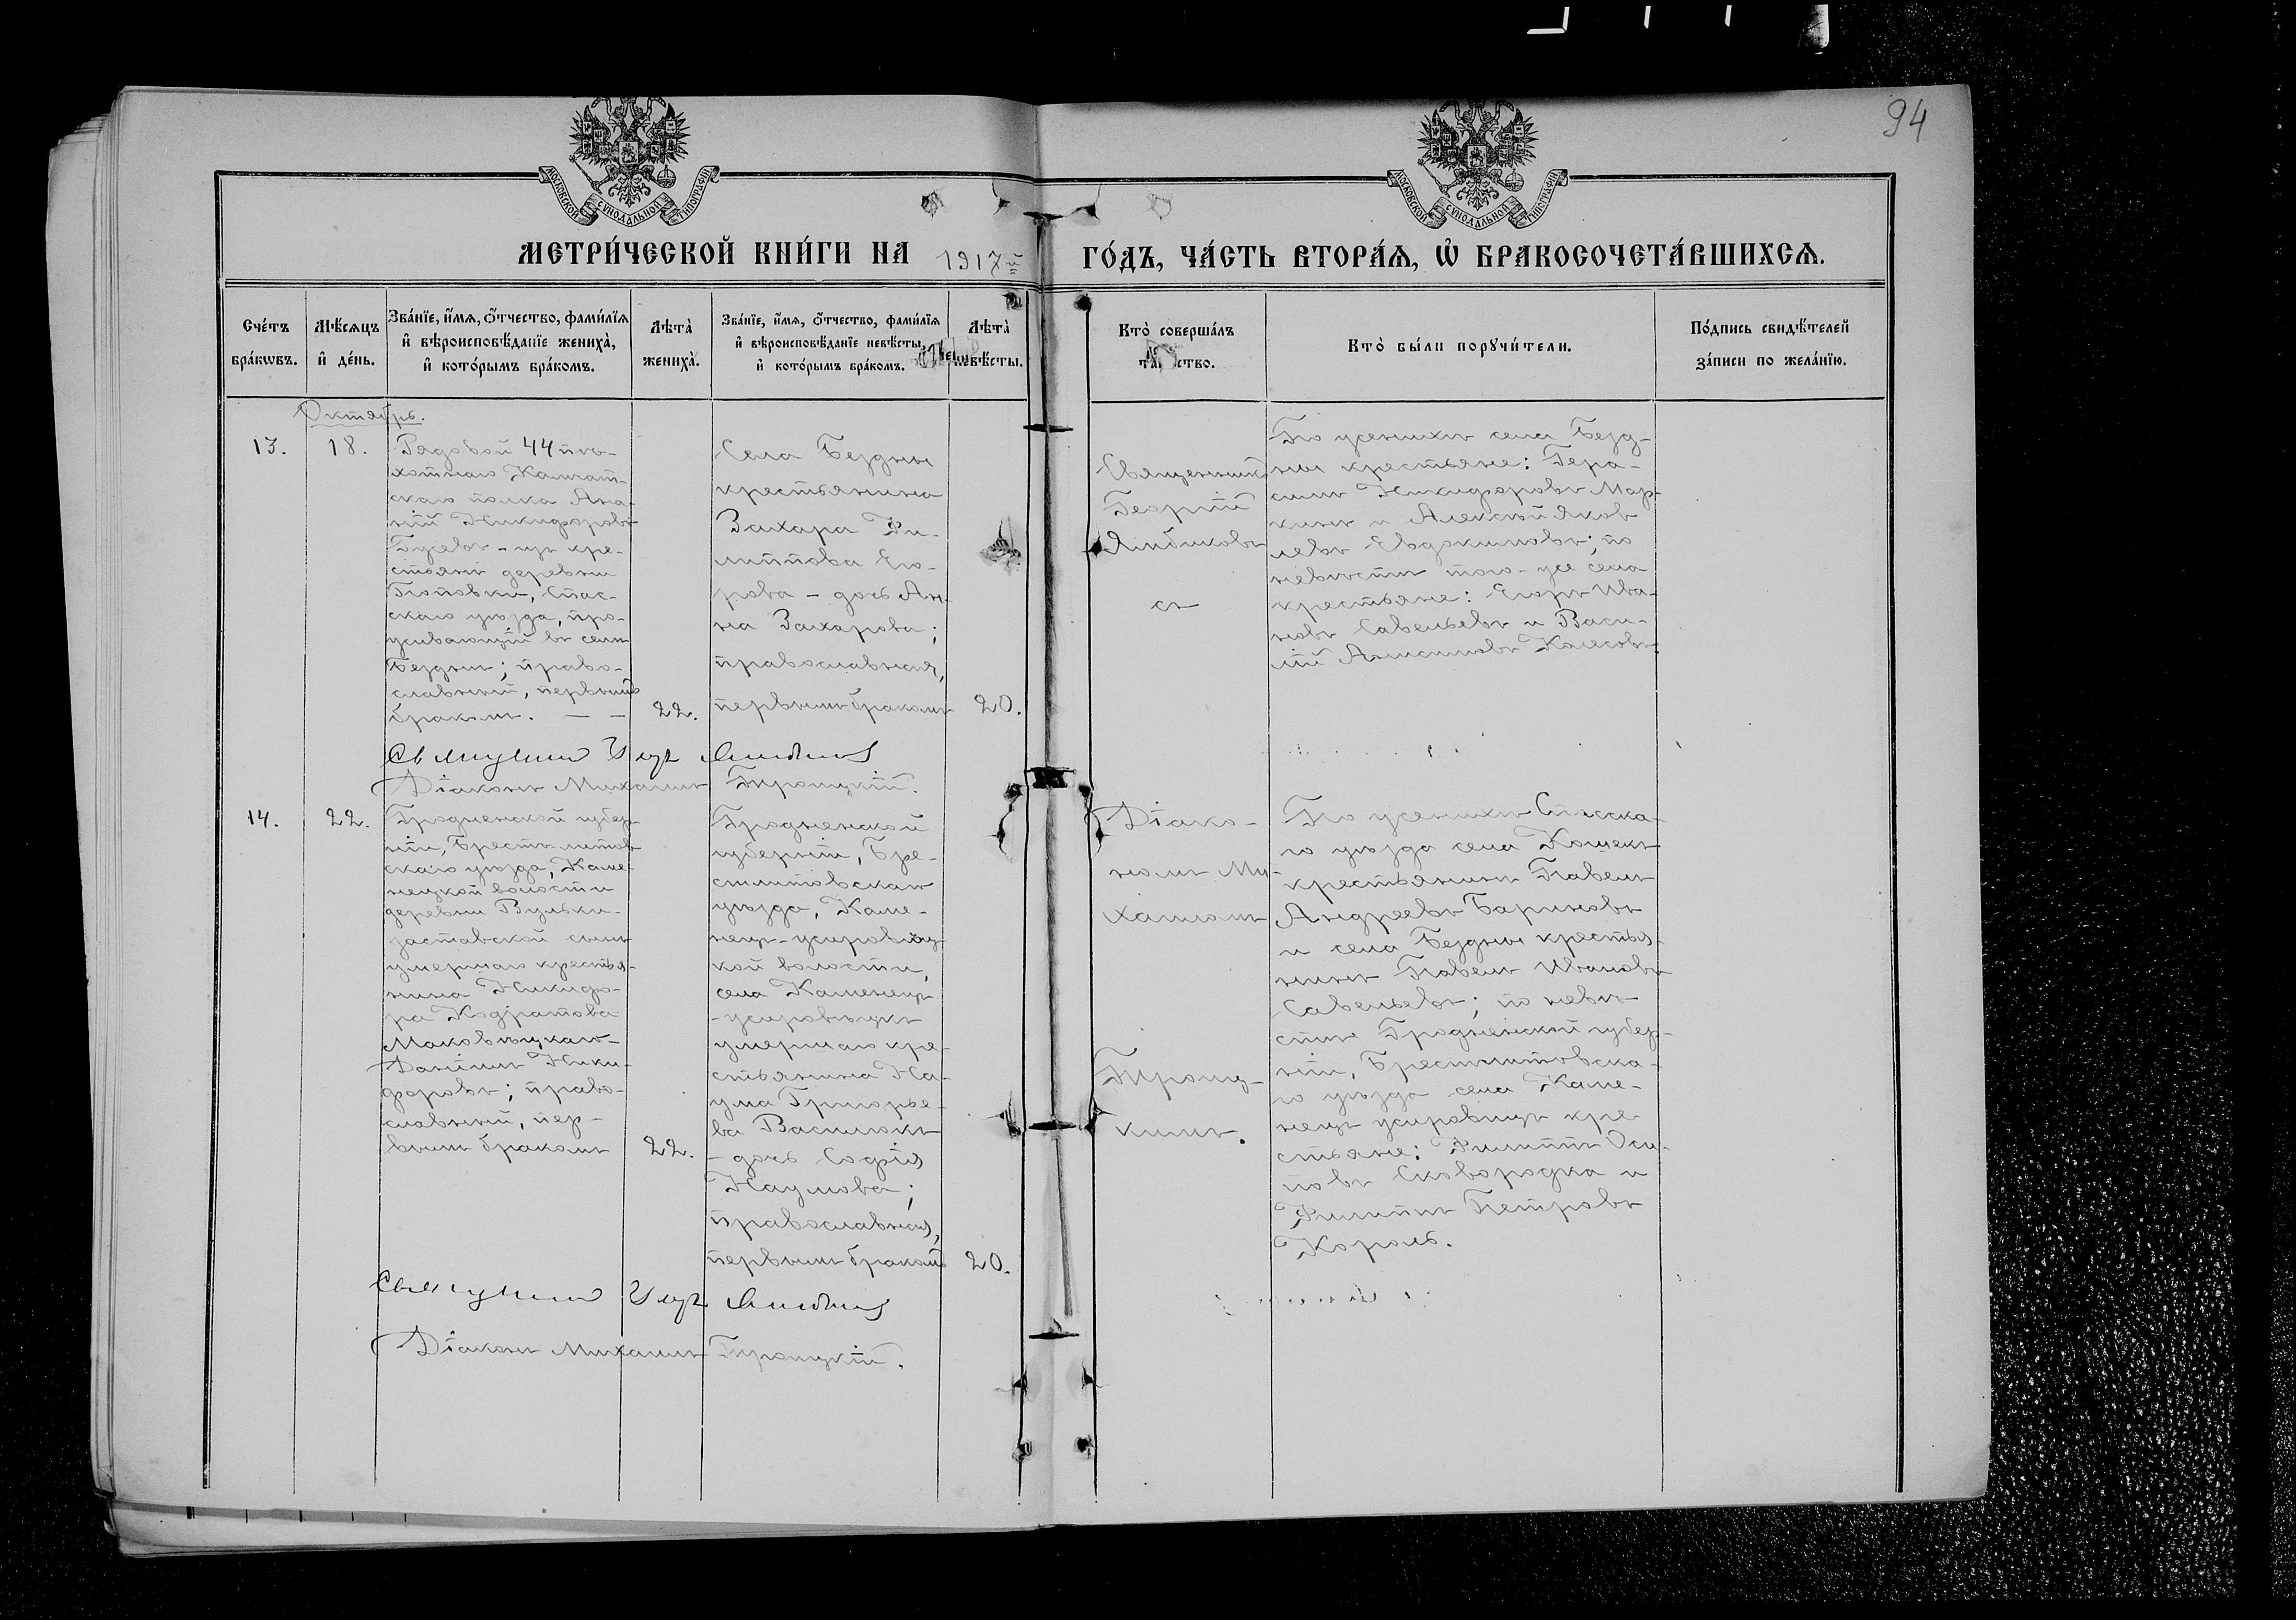 94
МОСКОВСКОЙ СѴНОДАЛЬНОЙ ТИПОГРАФІИ
МОСКОВСКОЙ СѴНОДАЛЬНОЙ ТИПОГРАФІИ
МЕТРИ́ЧЕСКОЙ КНИ́ГИ НА 1917й ГО́ДЪ, ЧА́СТЬ ВТОРА́Ѧ, Ѽ БРАКОСОЧЕТА́ВШИХСѦ.
Сче́тъ
бра́кѡвъ.
Мѣ́сѧцъ
и҆ де́нь.
Зва́нїе, и҆́мѧ, ѻ҆́тчество, фами́лїѧ
и҆ вѣроисповѣ́данїе жениха̀,
и҆ кото́рымъ бра́комъ.
Лѣта̀
жениха̀.
Зва́нїе, и҆́мѧ, ѻ҆́тчество, фами́лїѧ
и҆ вѣроисповѣ́данїе невѣ́сты,
и҆ кото́рымъ бра́комъ.
Лѣта̀
невѣ́сты.
Кто̀ соверша́лъ
Кто̀ бы́ли порꙋчи́тели.
По́дпись свидѣ́телей
за́писи по жела́нїю.
Октябрь.
13.
18.
Рядовой 44 пѣ-
хотнаго Камчат-
скаго полка Ана-
ній Никифоровъ
Гусевъ - изъ кре-
стьянъ деревни
Поповки, Спас-
скаго уѣзда, про-
живающій въ селѣ
Безднѣ; право-
славный, первымъ
бракомъ. — —
22.
Села Бездны
крестьянина
Захара Фи-
липпова Его-
рова - дочь Ан-
на Захарова;
православная,
первымъ бракомъ
20.
Священникъ
Георгій
Ямбиковъ
съ
По женихѣ села Безд-
ны крестьяне: Гера-
симъ Никифоровъ Мар-
кинъ и Алексѣй Яков
левъ Евдокимовъ; по
невѣстѣ того-же села
крестьяне: Егоръ Ива-
новъ Савельевъ и Васи-
лій Анисимовъ Колесовъ.
Діаконъ Михаилъ Троицкій.
14.
22.
Гродненской губер-
ніи, Брестъ-литов
скаго уѣзда, Каме-
нецкой волости
деревни Вульки-
заставской сынъ
умершаго крестья-
нина Никифо-
ра Кодратова
Маковецкаго-
Даніилъ Ники-
форовъ; право-
славный, пер-
вымъ бракомъ
22.
Гродненской
губерніи, Бре-
стлитовскаго
уѣзда, Каме-
нец-жировиц-
кой волости,
села Каменец
-жировицкъ
умершаго кре-
стьянина На-
ума Григорье-
ва Василюкъ
- дочь Софія
Наумова;
православная,
первымъ бракомъ
20.
Діако-
номъ Ми-
хаиломъ
Троиц-
кимъ.
По женихѣ Спасска-
го уѣзда села Кошекъ
крестьянинъ Павелъ
Андреевъ Бариновъ
и села Бездны крестья-
нинъ Павелъ Ивановъ
Савельевъ; по невѣ-
стѣ Гродненской губер-
ніи, Брестлитовска-
го уѣзда села Каме-
нец жировицъ кре
стьяне: Филиппъ Оси-
повъ Сковородка и
Филиппъ Петровъ
Король.
Діаконъ Михаилъ Троицкій.